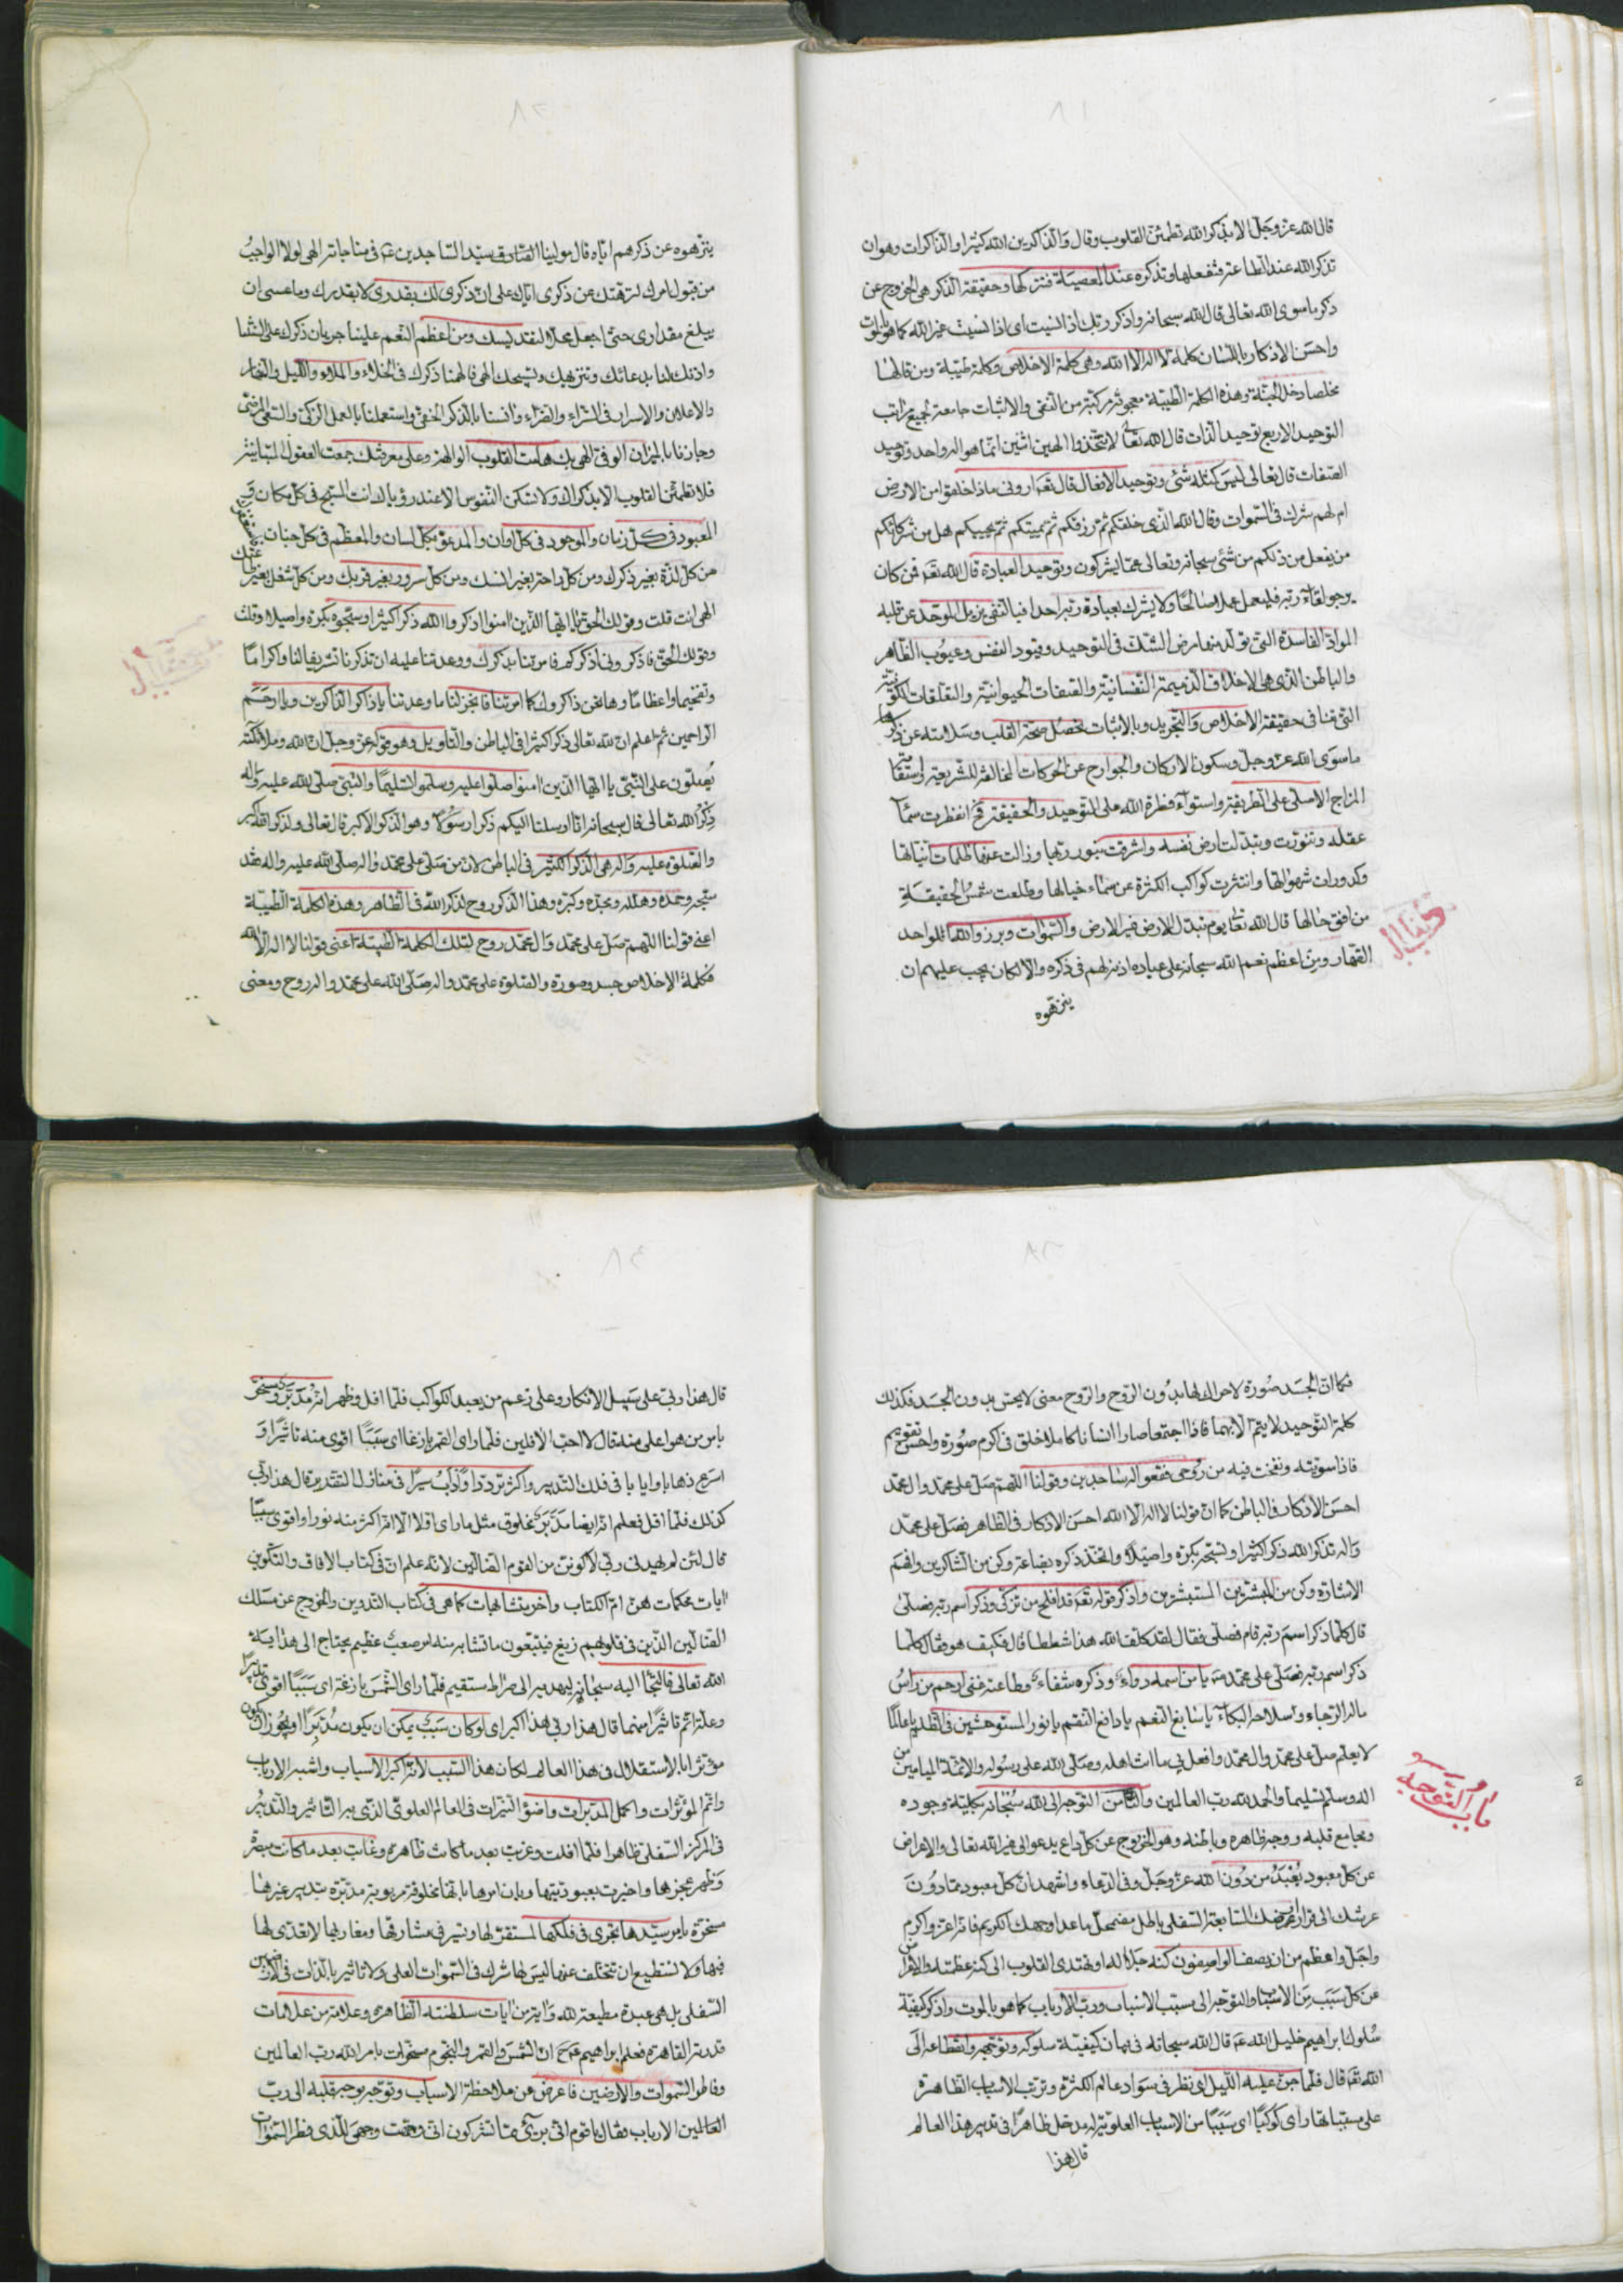 ٨١
قال الله عز وجل الا بذكر الله تطمئن القلوب وقال والذاكرين الله كثيرا والذاكرات وهو ان
تذكر الله عند الطاعة فتفعلها وتذكره عند المعصية فتتركها وحقيقة الذكر هي الخروج عن
ذكر ما سوى الله تعالى قال الله سبحانه واذكر ربك اذا نسيت اى اذا نسيت غير الله كما هو
واحسن الاذكار باللسان كلمة لا اله الا الله وهى كلمة الاخلاص وكلمة طيبة ومن قالها
مخلصا دخل الجنة وهذه الكلمة الطيبة معجون مركبة من النفى والاثبات جامعة لجميع مراتب
التوحيد الاربع توحيد الذات قال الله تعا لا تتخذوا الهين اثنين انما هو اله واحد وتوحيد
الصفات قال تعالى ليس كمثله شئ وتوحيد الافعال قال تعه ارونى ماذا خلقوا من الارض
ام لهم شرك فى السموات وقال الله الذى خلقكم ثم رزقكم ثم يميتكم ثم يحييكم هل من شركائكم
من يفعل من ذلكم من شئ سبحانه وتعالى عما يشركون وتوحيد العبادة قال الله تعه فمن كان
يرجو لقاء ربه فليعمل عملا صالحا ولا يشرك بعبادة ربه احدا فبالنفى يزيل الموحد عن قلبه
المواد الفاسدة التى تولد منها مرض الشك فى التوحيد وقيود النفس وعيوب الظاهر
والباطن الذى هى الاخلاق الذميمة النفسانية والصفات الحيوانية والتعلقات الكونية
التى تنافى حقيقة الاخلاص والتجريد وبالاثبات تحصل صحة القلب وسلامته عن ذكر
ما سوى الله عز وجل وسكون الاركان والجوارح عن الحركات المخالفة للشريعة واستقامة
المزاج الاصلى على الطريقة واستواء فطرة الله على التوحيد والحقيقة فح انفطرت سماء
عقله وتنورت وتبدلت ارض نفسه واشرقت بنور ربها وزالت عنها ظلمات انياتها
وكدورات شهواتها وانتثرت كواكب الكثرة عن سماء خيالها وطلعت شمس الحقيقة
من افق حالها قال الله تعا يوم تبدل الارض غير الارض والسموات وبرزوا لله الواحد
القهار ومن اعظم نعم الله سبحانه على عباده اذنه لهم فى ذكره والا لكان يجب عليهم ان
ينزهوه
٨٢
ينزهوه عن ذكرهم اياه قال مولينا الصادق سيد الساجدين عم فى مناجاته الهى لولا الواجب
من قبول امرك لنزهتك عن ذكرى اياك على ان ذكرى لك بقدرى لا بقدرك وما عسى ان
يبلغ مقدارى حتى اجعل محلا لتقديسك ومن اعظم النعم علينا جريان ذكرك على السنتنا
واذنك لنا بدعائك وتنزيهك وتسبيحك الهى فالهمنا ذكرك فى الخلاء والملاء والليل والنهار
والاعلان والاسرار فى السراء والضراء وانسنا بالذكر الخفى واستعملنا بالعمل الزكى والسعى المرضى
وجازنا بالميزان الوفى الهى بك هامت القلوب الوالهة وعلى معرفتك جمعت العقول المتباينة
فلا تطمئن القلوب الا بذكراك ولا تسكن النفوس الا عند رؤياك انت المسبح فى كل مكان و
المعبود فى كل زمان والموجود فى كل اوان والمدعو بكل لسان والمعظم فى كل جنان استغفرك
من كل لذة بغير ذكرك ومن كل راحة بغير انسك ومن كل سرور بغير قربك ومن كل شغل بغير طاعتك
الهى انت قلت وقولك الحق يا ايها الذين امنوا اذكروا الله ذكرا كثيرا وسبحوه بكرة واصيلا وقلت
وقولك الحق فاذكرونى اذكركم فامرتنا بذكرك ووعدتنا عليه ان تذكرنا تشريفا لنا واكراما
وتفخيما واعظاما وها نحن ذاكروك كما امرتنا فانجز لنا ما وعدتنا يا ذاكر الذاكرين ويا ارحم
الراحمين ثم اعلم ان لله تعالى ذكرا كثيرا فى الباطن والتاويل وهو قوله عز وجل ان الله وملائكته
يصلون على النبى يا ايها الذين امنوا صلوا عليه وسلموا تسليما والنبى صلى الله عليه واله
ذكر الله تعالى قال سبحانه انا ارسلنا اليكم ذكرا رسولا وهو الذكر الاكبر قال تعالى ولذكر الله اكبر
والصلوة عليه واله هى الذكر الكثير فى الباطن لان من صلى على محمد واله صلى الله عليه واله فقد
سبحه وحمده وهلله ومجده وكبره وهذا الذكر روح لذكر الله فى الظاهر وهذه الكلمة الطيبة
اعنى قولنا اللهم صل على محمد وال محمد روح لتلك الكلمة الطيبة اعنى قولنا لا اله الا الله
فكلمة الاخلاص جسد وصورة والصلوة على محمد واله صلى الله على محمد واله روح ومعنى
٨٣
فكما ان الجسد صورة لا حراك لها بدون الروح والروح معنى لا يحس بدون الجسد فكذلك
كلمة التوحيد لا يتم الا بهما فاذا اجتمعا صارا انسانا كاملا خلق فى اكرم صورة واحسن تقويم
فاذا سويته ونفخت فيه من روحى فقعوا له ساجدين وقولنا اللهم صل على محمد وال محمد
احسن الاذكار فى الباطن كما ان قولنا لا اله الا الله احسن الاذكار فى الظاهر فصل على محمد
واله تذكر الله ذكرا كثيرا وتسبحه بكرة واصيلا واتخذ ذكره بضاعة وكن من الشاكرين وافهم
الاشارة وكن من المبشرين المستبشرين واذكر قوله تعه قد افلح من تزكى وذكر اسم ربه فصلى
قال كلما ذكر اسم ربه قام فصلى فقال لقد كلف الله هذا شططا قال فكيف هو فقال كلما
ذكر اسم ربه فصلى على محمد واله يا من اسمه دواء وذكره شفاء وطاعته غنى ارحم من راس
ماله الرجاء وسلاحه البكاء يا سابغ النعم يا دافع النقم يا نور المستوحشين فى الظلم يا عالما
لا يعلم صل على محمد وال محمد وافعل بى ما انت اهله وصلى الله على رسوله والائمة الميامين من
اله وسلم تسليما والحمد لله رب العالمين والثامن التوجه الى الله سبحانه بكلية وجوده
ومجامع قلبه ووجه ظاهره وباطنه وهو الخروج عن كل داع يدعو الى غير الله تعالى والاعراض
عن كل معبود يعبد من دون الله عز وجل وفى الدعاء واشهد ان كل معبود مما دون
عرشك الى قرار ارضك السابعة السفلى باطل مضمحل ما عدا وجهك الكريم فانه اعز واكرم
واجل واعظم من ان يصف الواصفون كنه جلاله او تهتدى القلوب الى كنه عظمته والاعراض
عن كل سبب من الاسباب والتوجه الى مسبب الاسباب ورب الارباب كما هو بالموت واذكر كيفية
سلوك ابراهيم خليل الله عم قال الله سبحانه فى بيان كيفية سلوكه وتوجهه وانقطاعه الى
الله تعه قال فلما جن عليه الليل اى نظر فى سواد عالم الكثرة وترتب الاسباب الظاهرة
على مسبباتها راى كوكبا اى سببا من الاسباب العلوية له مدخل ظاهرا فى تدبير هذا العالم
قال هذا
باب التوجه
٨٤
قال هذا ربى على سبيل الانكار وعلى زعم من يعبد الكواكب فلما افل وظهر انه مدبر ومسخر
بامر من هو اعلى منه قال لا احب الافلين فلما راى القمر بازغا اى سببا اقوى منه تاثيرا و
اسرع ذهابا وايابا فى فلك التدبير واكثر ترددا وادب سيرا فى منازل التقدير قال هذا ربى
كذلك فلما افل فعلم انه ايضا مدبر مخلوق مثل ما راى افلا الا انه اكثر منه نورا واقوى سببا
قال لئن لم يهدنى ربى لاكونن من القوم الضالين لانه علم ان فى كتاب الافاق والتكوين
ايات محكمات هن ام الكتاب واخر متشابهات كما هى فى كتاب التدوين والخروج عن مسلك
الضالين الذين فى قلوبهم زيغ فيتبعون ما تشابه منه امر صعب عظيم يحتاج الى هداية
الله تعالى فالتجا اليه سبحانه ليهديه الى صراط مستقيم فلما راى الشمس بازغة اى سببا اقوى تدبيرا
وعلة اتم تاثيرا منهما قال هذا ربى هذا اكبر اى لو كان سبب يمكن ان يكون مدبرا او يجوز ان يكون
مؤثرا بالاستقلال فى هذا العالم لكان هذا السبب لانه اكبر الاسباب واشبه الارباب
واتم المؤثرات واكمل المدبرات واضؤ النيرات فى العالم العلوى الذى بيده التاثير والتدبير
فى المركز السفلى ظاهرا فلما افلت وغربت بعد ما كانت ظاهرة وغابت بعد ما كانت مبصرة
وظهر عجزها واخبرت بعبوديتها وبان امرها بانها مخلوقة مربوبة مدبرة بتدبير غيرها
مسخرة بامر سيدها تجرى فى فلكها لمستقر لها وتسير فى مشارقها ومغاربها لا تعدى لها
فيها ولا تستطيع ان تتخلف عنها ليس لها شرك فى السموات العلى ولا تاثير بالذات فى الارضين
السفلى بل هى عبدة مطيعة لله واية من ايات سلطنته الظاهرة وعلامة من علامات
قدرته القاهرة فعلم ابراهيم عم ح ان الشمس والقمر والنجوم مسخرات بامر الله رب العالمين
وفاطر السموات والارضين فاعرض عن ملاحظة الاسباب وتوجه بوجه قلبه الى رب
العالمين الارباب فقال يا قوم انى برئ مما تشركون انى وجهت وجهى للذى فطر السموات